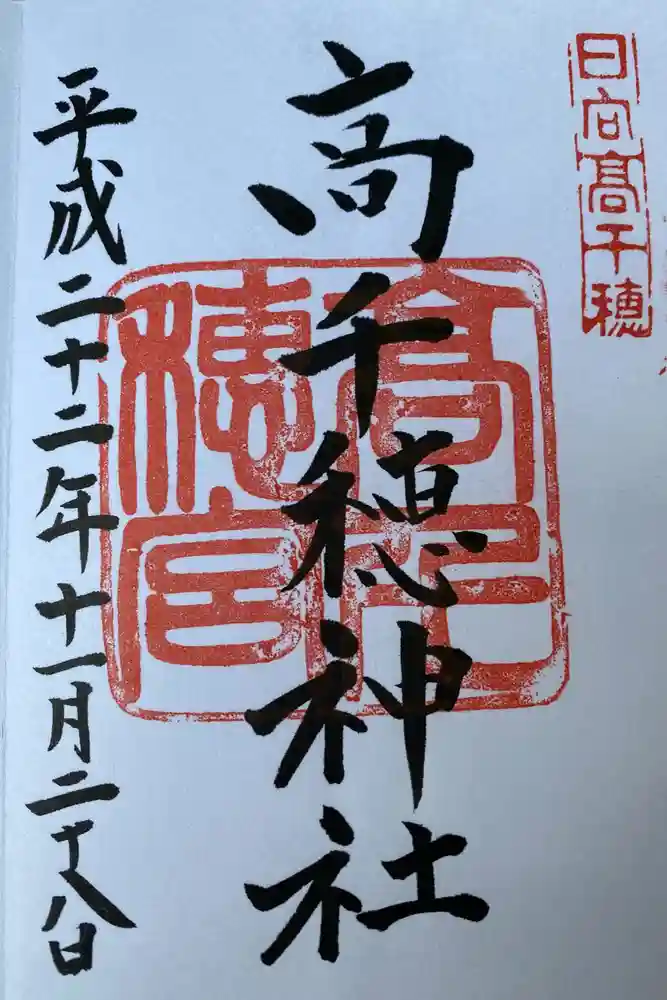 日向高千穂
高千穂神社
高千穂宮
平成二十二年十一月二十八日